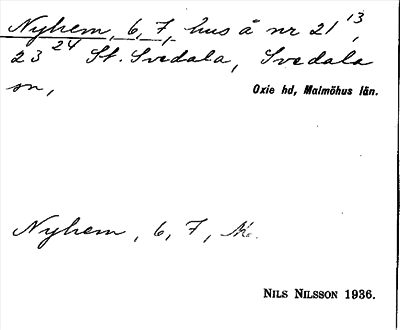 Nyhem, 6, 7, hus å nr 21 13,
23 24 St. Svedala, Svedala
sn,
Oxie hd, Malmöhus län.
Nyhem, 6, 7,
NILS NILSSON 1936.